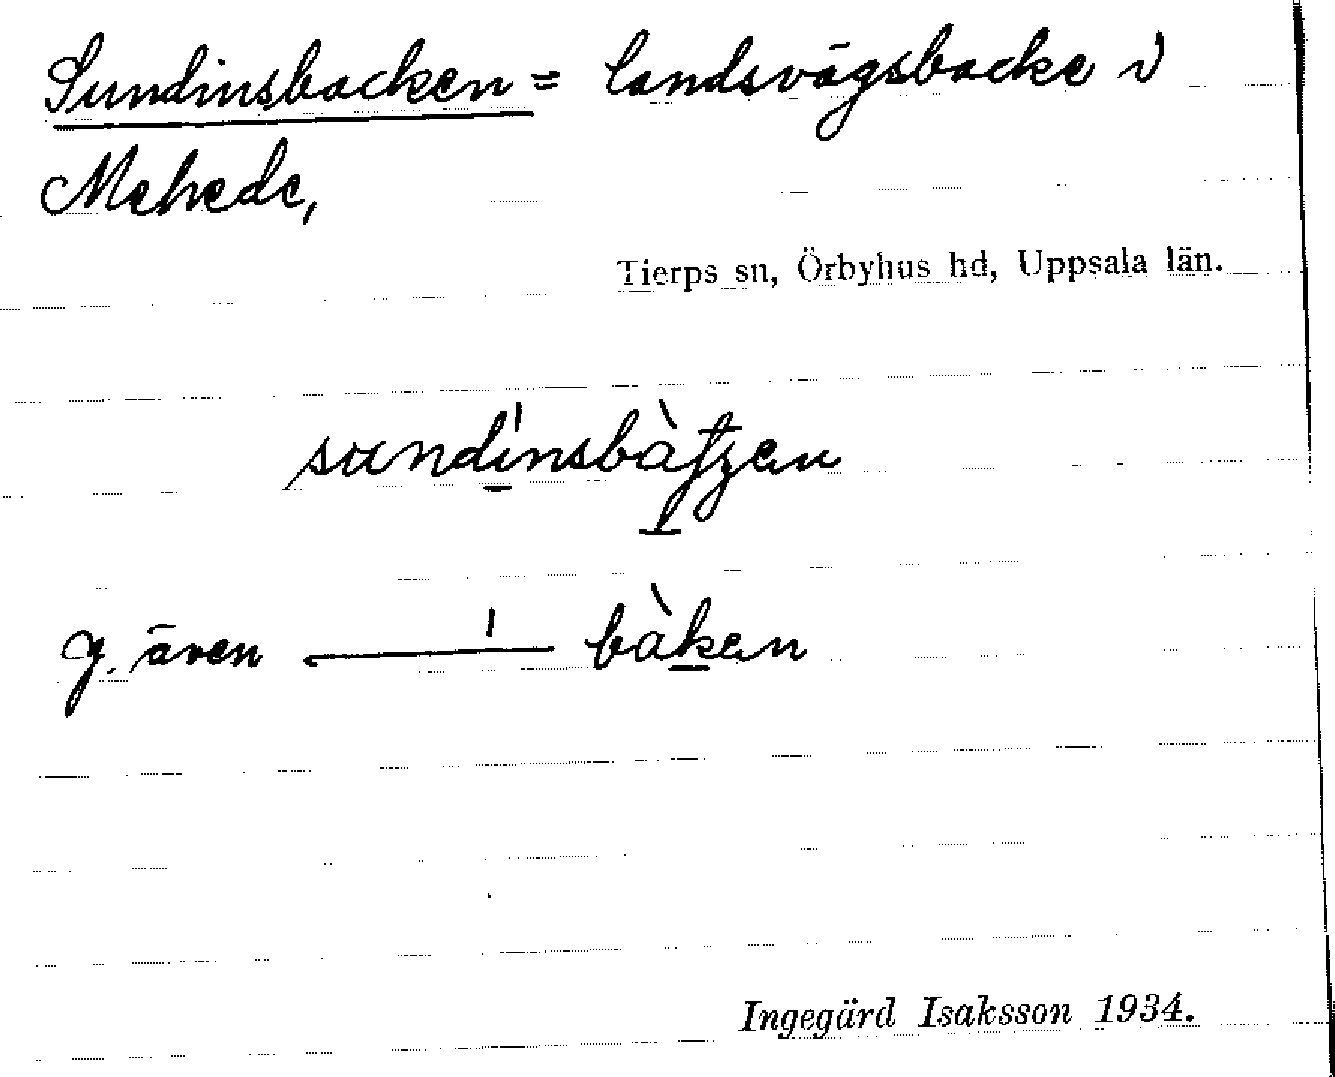 Sundinsbacken = landsvägsbacke i
Mehede,
Tierps sn, Örbyhus hd, Uppsala län.
g. även ——— bàken
Ingegärd Isaksson 1934.